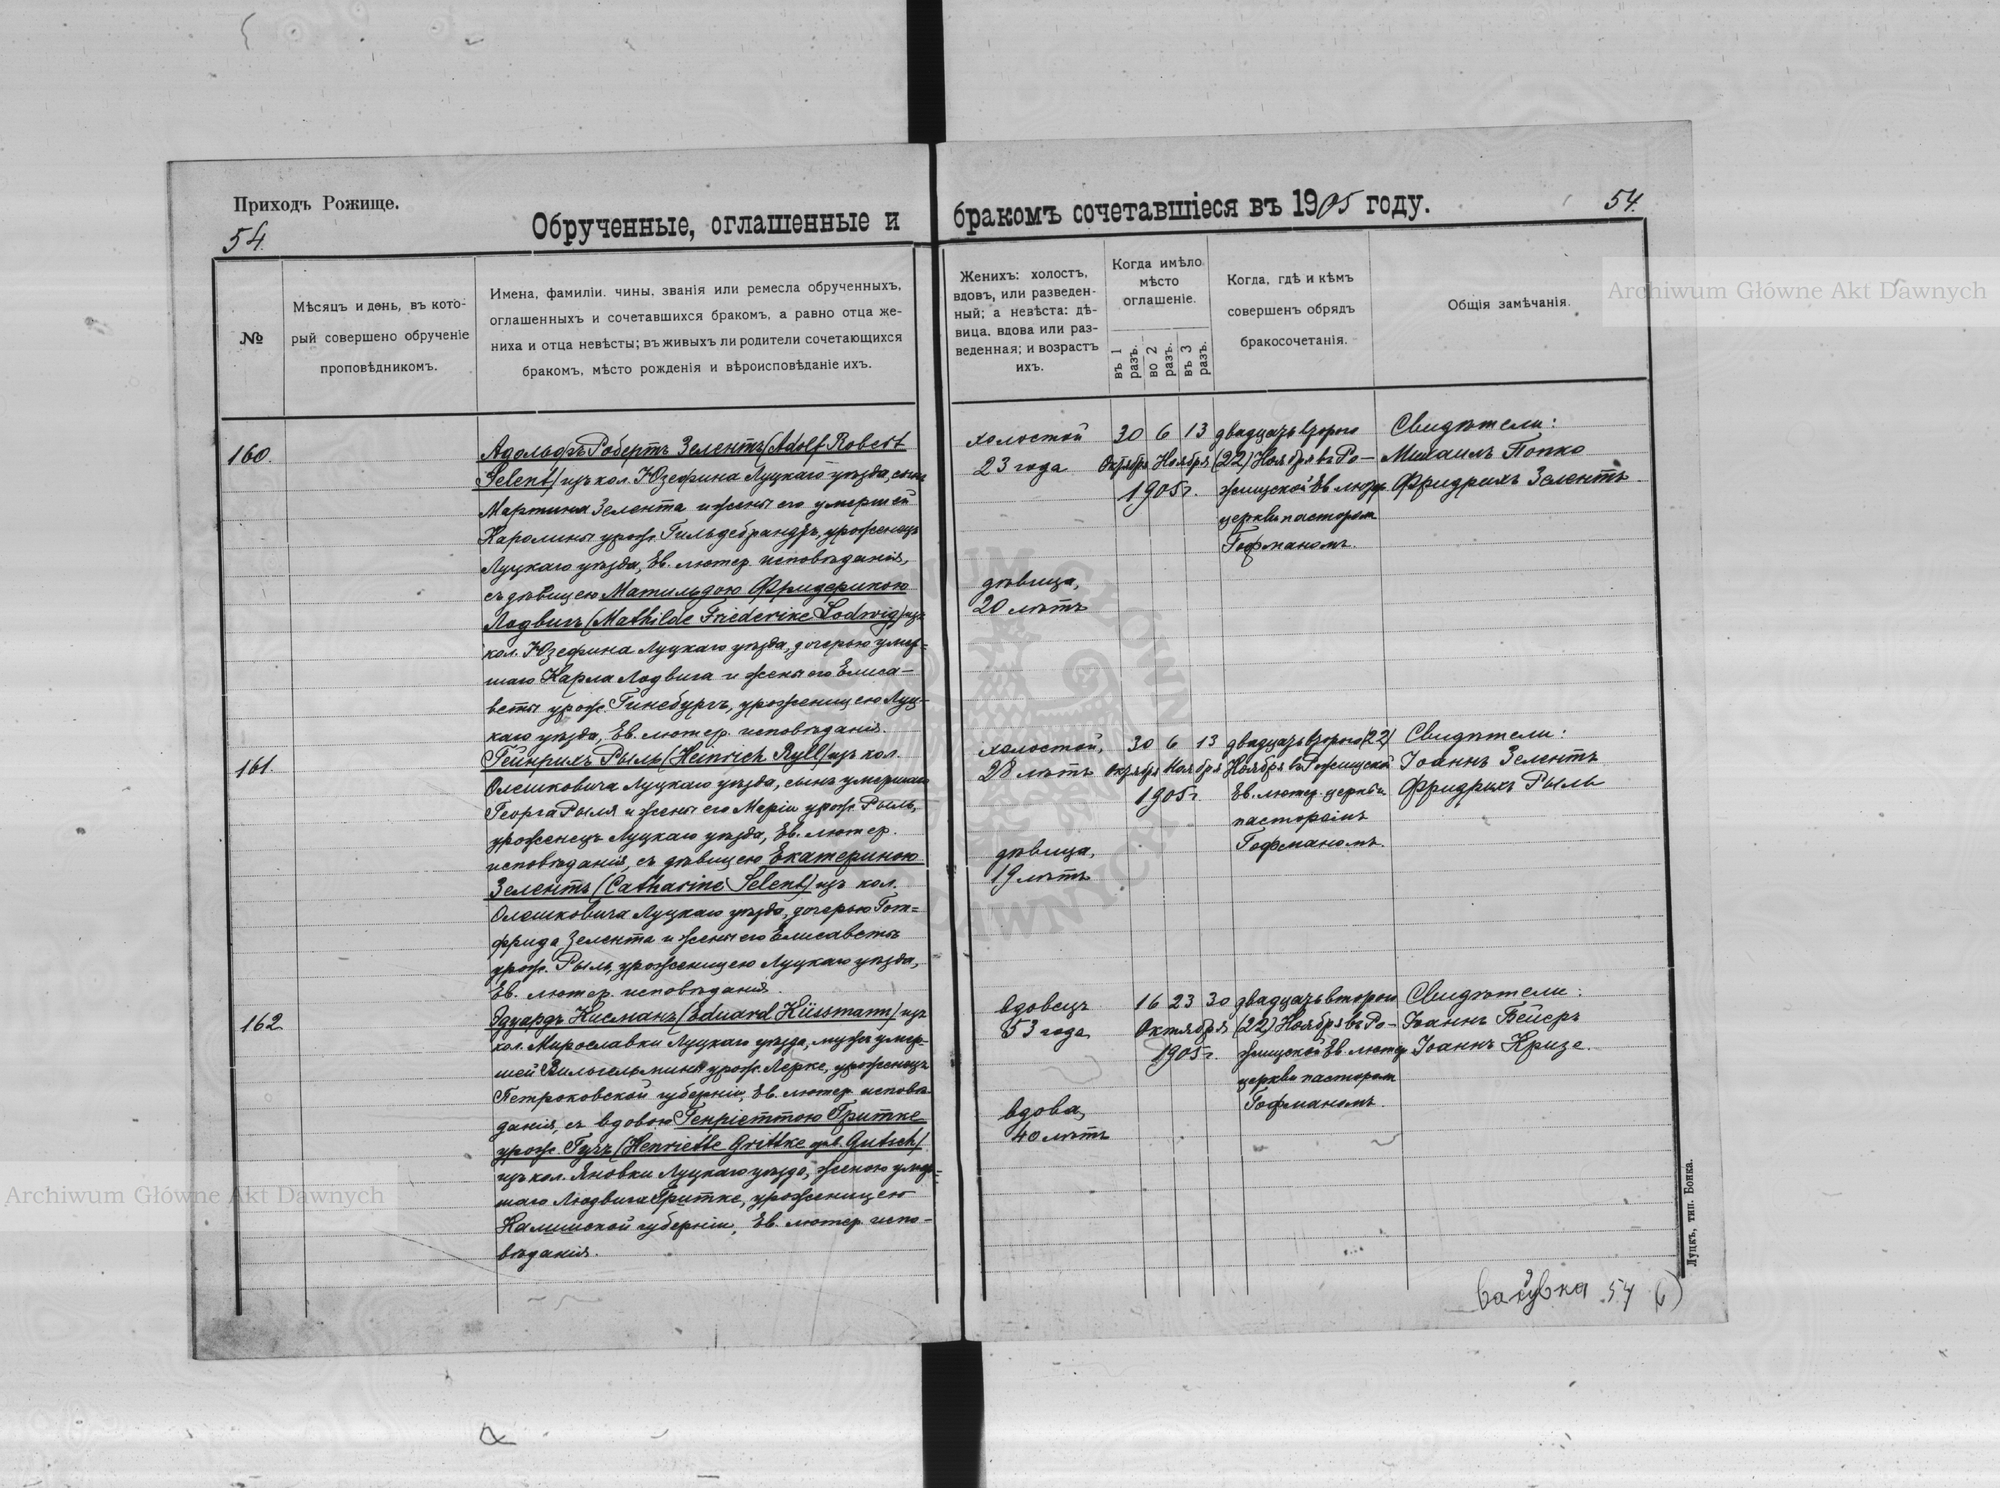 Приходъ Рожище.
54.
Обрученные, оглашенные и бракомъ сочетавшіеся въ 1905 году.
54.
№
Мѣсяцъ и день, въ кото-
рый совершено обрученіе
проповѣдникомъ.
Имена, фамиліи, чины, званія или ремесла обрученныхъ,
оглашенныхъ и сочетавшихся бракомъ, а равно отца же-
ниха и отца невѣсты; въ живыхъ ли родители сочетающихся
бракомъ, мѣсто рожденія и вѣроисповѣданіе ихъ.
Женихъ: холостъ,
вдовъ, или разведен-
ный; а невѣста: дѣ-
вица, вдова или раз-
веденная; и возрастъ
ихъ.
Когда имѣло
мѣсто
оглашеніе.
въ 1 разъ.
во 2 разъ.
въ 3 разъ.
Когда, гдѣ и кѣмъ
совершенъ обрядъ
бракосочетанія.
Общія замѣчанія.
160.
Адольфъ Робертъ Зелентъ (Adolf Robert
Selent) изъ кол. Юзефина Луцкаго уѣзда, сынъ
Мартина Зелента и жены его умершей
Каролины урож. Гильдебрандтъ, уроженецъ
Луцкаго уѣзда, Ев. лютер. исповѣданія,
съ дѣвицею Матильдою Фридерикою
Лодвигъ (Mathilde Friederike Lodwig) изъ
кол. Юзефина Луцкаго уѣзда, дочерью умер-
шаго Карла Лодвига и жены его Елиса-
веты урож. Гинсбургъ, уроженицею Луц-
каго уѣзда, Ев. лютер. исповѣданія.
холостой
23 года
дѣвица,
20 лѣтъ
30 6 13
Октября Ноября
1905 г.
двадцать второго
(22) Ноября въ Ро-
жищской Ев. лютер.
церкви пасторомъ
Гофманомъ.
Свидѣтели:
Михаилъ Попко
Фридрихъ Зелентъ
161.
Гейнрихъ Рыль (Heinrich Ryll) изъ кол.
Олешковича Луцкаго уѣзда, сынъ умершаго
Георга Рыля и жены его Маріи урож. Рыль,
уроженецъ Луцкаго уѣзда, Ев. лютер.
исповѣданія, съ дѣвицею Екатериною
Зелентъ (Catharine Selent) изъ кол.
Олешковича Луцкаго уѣзда, дочерью Гот-
фрида Зелента и жены его Елисаветы
урож. Рыль, уроженицею Луцкаго уѣзда,
Ев. лютер. исповѣданія.
холостой,
28 лѣтъ
дѣвица,
19 лѣтъ
30 6 13
Октября Ноября
1905 г.
двадцать второго (22)
Ноября въ Рожищской
Ев. лютер. церкви
пасторомъ
Гофманомъ.
Свидѣтели:
Іоаннъ Зелентъ
Фридрихъ Рыль
162.
Эдуардъ Кисманъ (Eduard Küssmann) изъ
кол. Мирославки Луцкаго уѣзда, мужъ умер-
шей Вильгельмины урож. Лерке, уроженецъ
Петроковской губерніи, Ев. лютер. исповѣ-
данія, съ вдовою Генріеттою Гриттке
урож. Гучъ (Henriette Grittke geb. Gutsch)
изъ кол. Яновки Луцкаго уѣзда, женою умер-
шаго Людвига Гриттке, уроженицею
Калишской губерніи, Ев. лютер. испо-
вѣданія.
вдовецъ
53 года
вдова,
40 лѣтъ
16 23 30
Октября
1905 г.
двадцать второго
(22) Ноября въ Ро-
жищской Ев. лютер.
церкви пасторомъ
Гофманомъ.
Свидѣтели:
Іоаннъ Бейеръ
Іоаннъ Кризе.
Луцкъ, тип. Бонка.
54
Archiwum Główne Akt Dawnych
Archiwum Główne Akt Dawnych